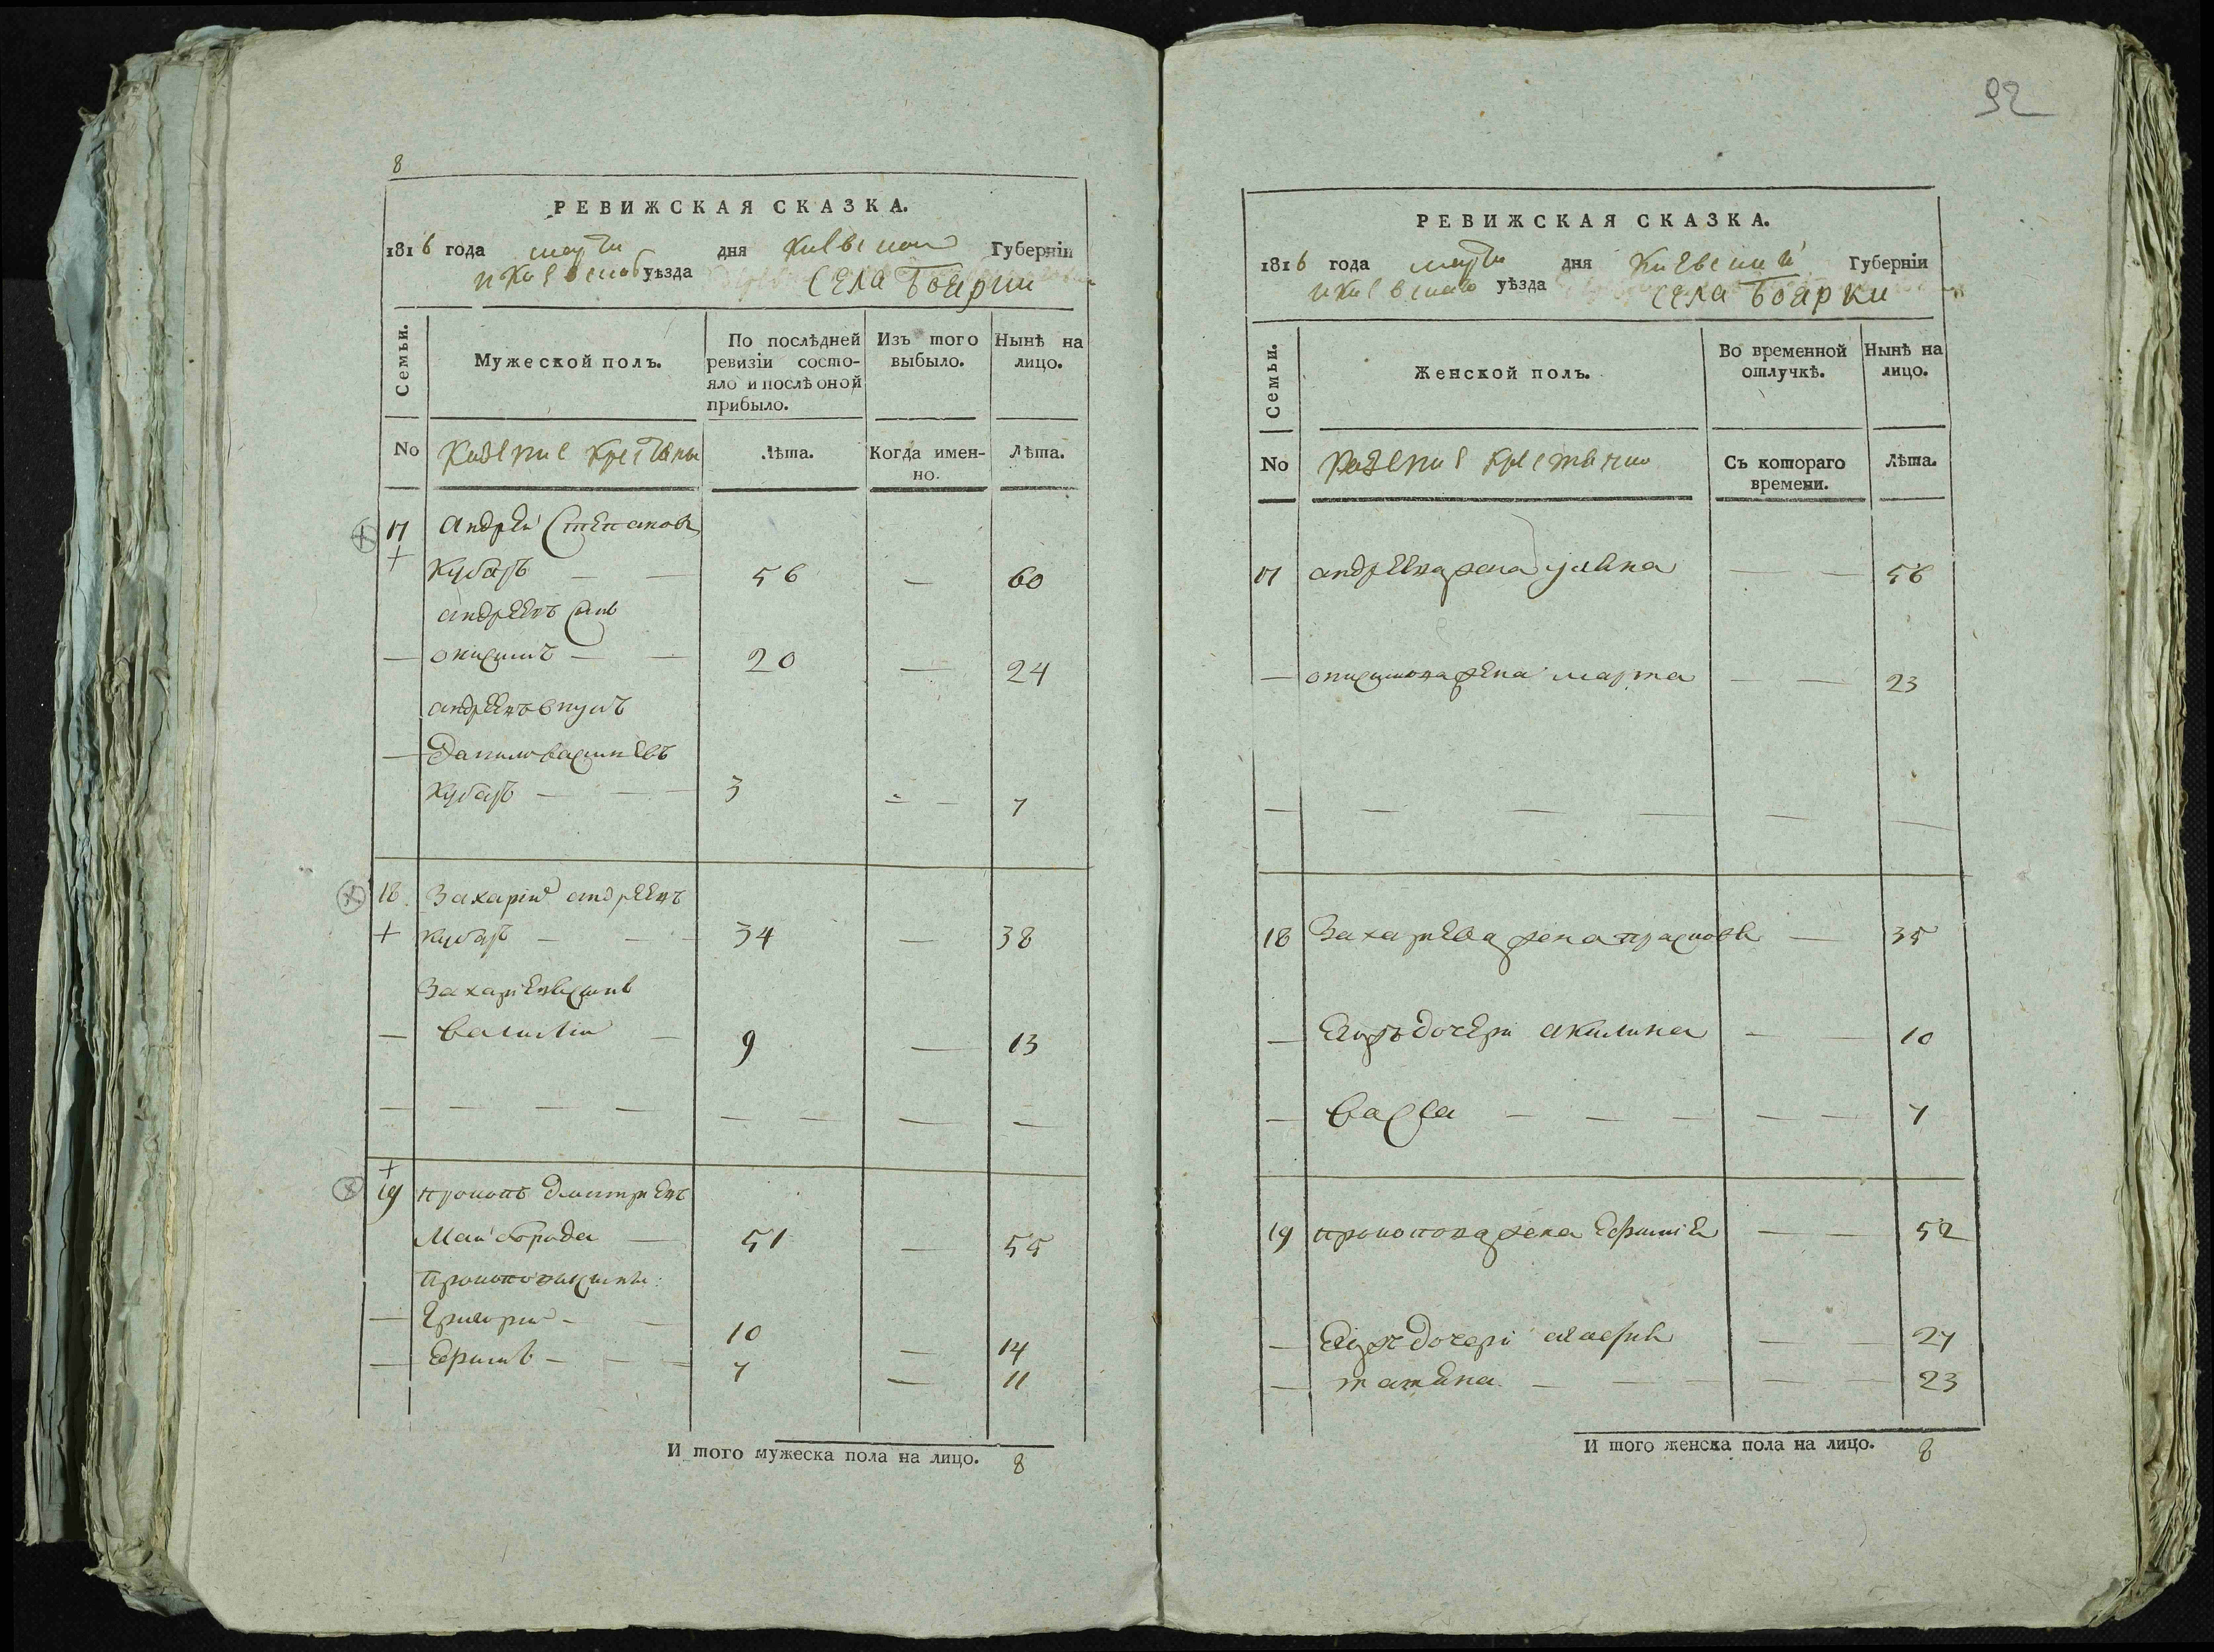 8
РЕВИЖСКАЯ СКАЗКА.
1816 года марта дня Киевской Губерніи
и Киевскаго уѣзда Села Боярки
Семьи. Мужеской полъ. По послѣдней ревизіи состояло и послѣ оной прибыло. Изъ того выбыло. Нынѣ на лицо.
No Казенные крестьяны Лѣта. Когда именно. Лѣта.
17 Андрей Степановъ
Кубаръ — — 56 — 60
андреевъ сынъ
— онисимъ — — 20 — 24
андреевъ внукъ
— Данило
Кубаръ — — — 3 — — 7
18. Захарій андреевъ
Кубаръ — — — 34 — 38
Захаріевъ сынъ
— Василій — 9 — 13
— — — — — — — —
19 прокопъ дмитріевъ
Майборода — 51 — 55
прокоповы сыны:
— Григорій — — 10 — 14
— Ефимъ — — — 7 — 11
И того мужеска пола на лицо. 8
92
РЕВИЖСКАЯ СКАЗКА.
1816 года марта дня Киевской Губерніи
и Киевскаго уѣзда Села Боярки
Семьи. Женской полъ. Во временной отлучкѣ. Нынѣ на лицо.
No Казенные крестьянки Съ котораго времени. Лѣта.
17 андреева жена улияна — — 56
— онисимова жена марта — — 23
— — — — — —
18 Захариева жена прасковя — 35
— Егожъ дочери акилина — — 10
— васса — — — — — 7
19 прокопова жена Ефимія — — 52
— Егожъ дочери агафия — — 27
— татияна — — — — — 23
И того женска пола на лицо. 8